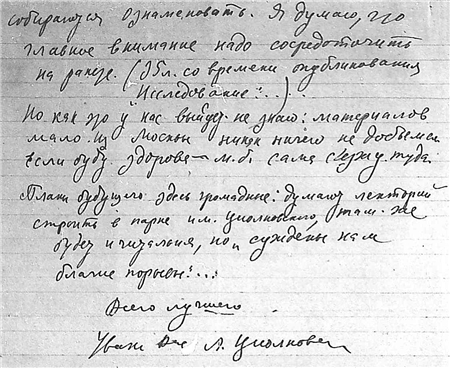 собираются ознаменовать. Я думаю, что
главное внимание надо сосредоточить
на ракете. (Юбил. со времени опубликования
"Исследование"...)
Но как это у нас выйдет не знаю: материалов
мало. Из Москвы никак ничего не добьемся.
Если буду здорова – м.б. сама съезжу туда.
Планы будущего здесь громадные: думают лекторий
строить в парке им. Циолковского, там же
будет и читальня, но "суждены нам
благие порывы"...
Всего лучшего
Уваж Вас Л. Циолковск